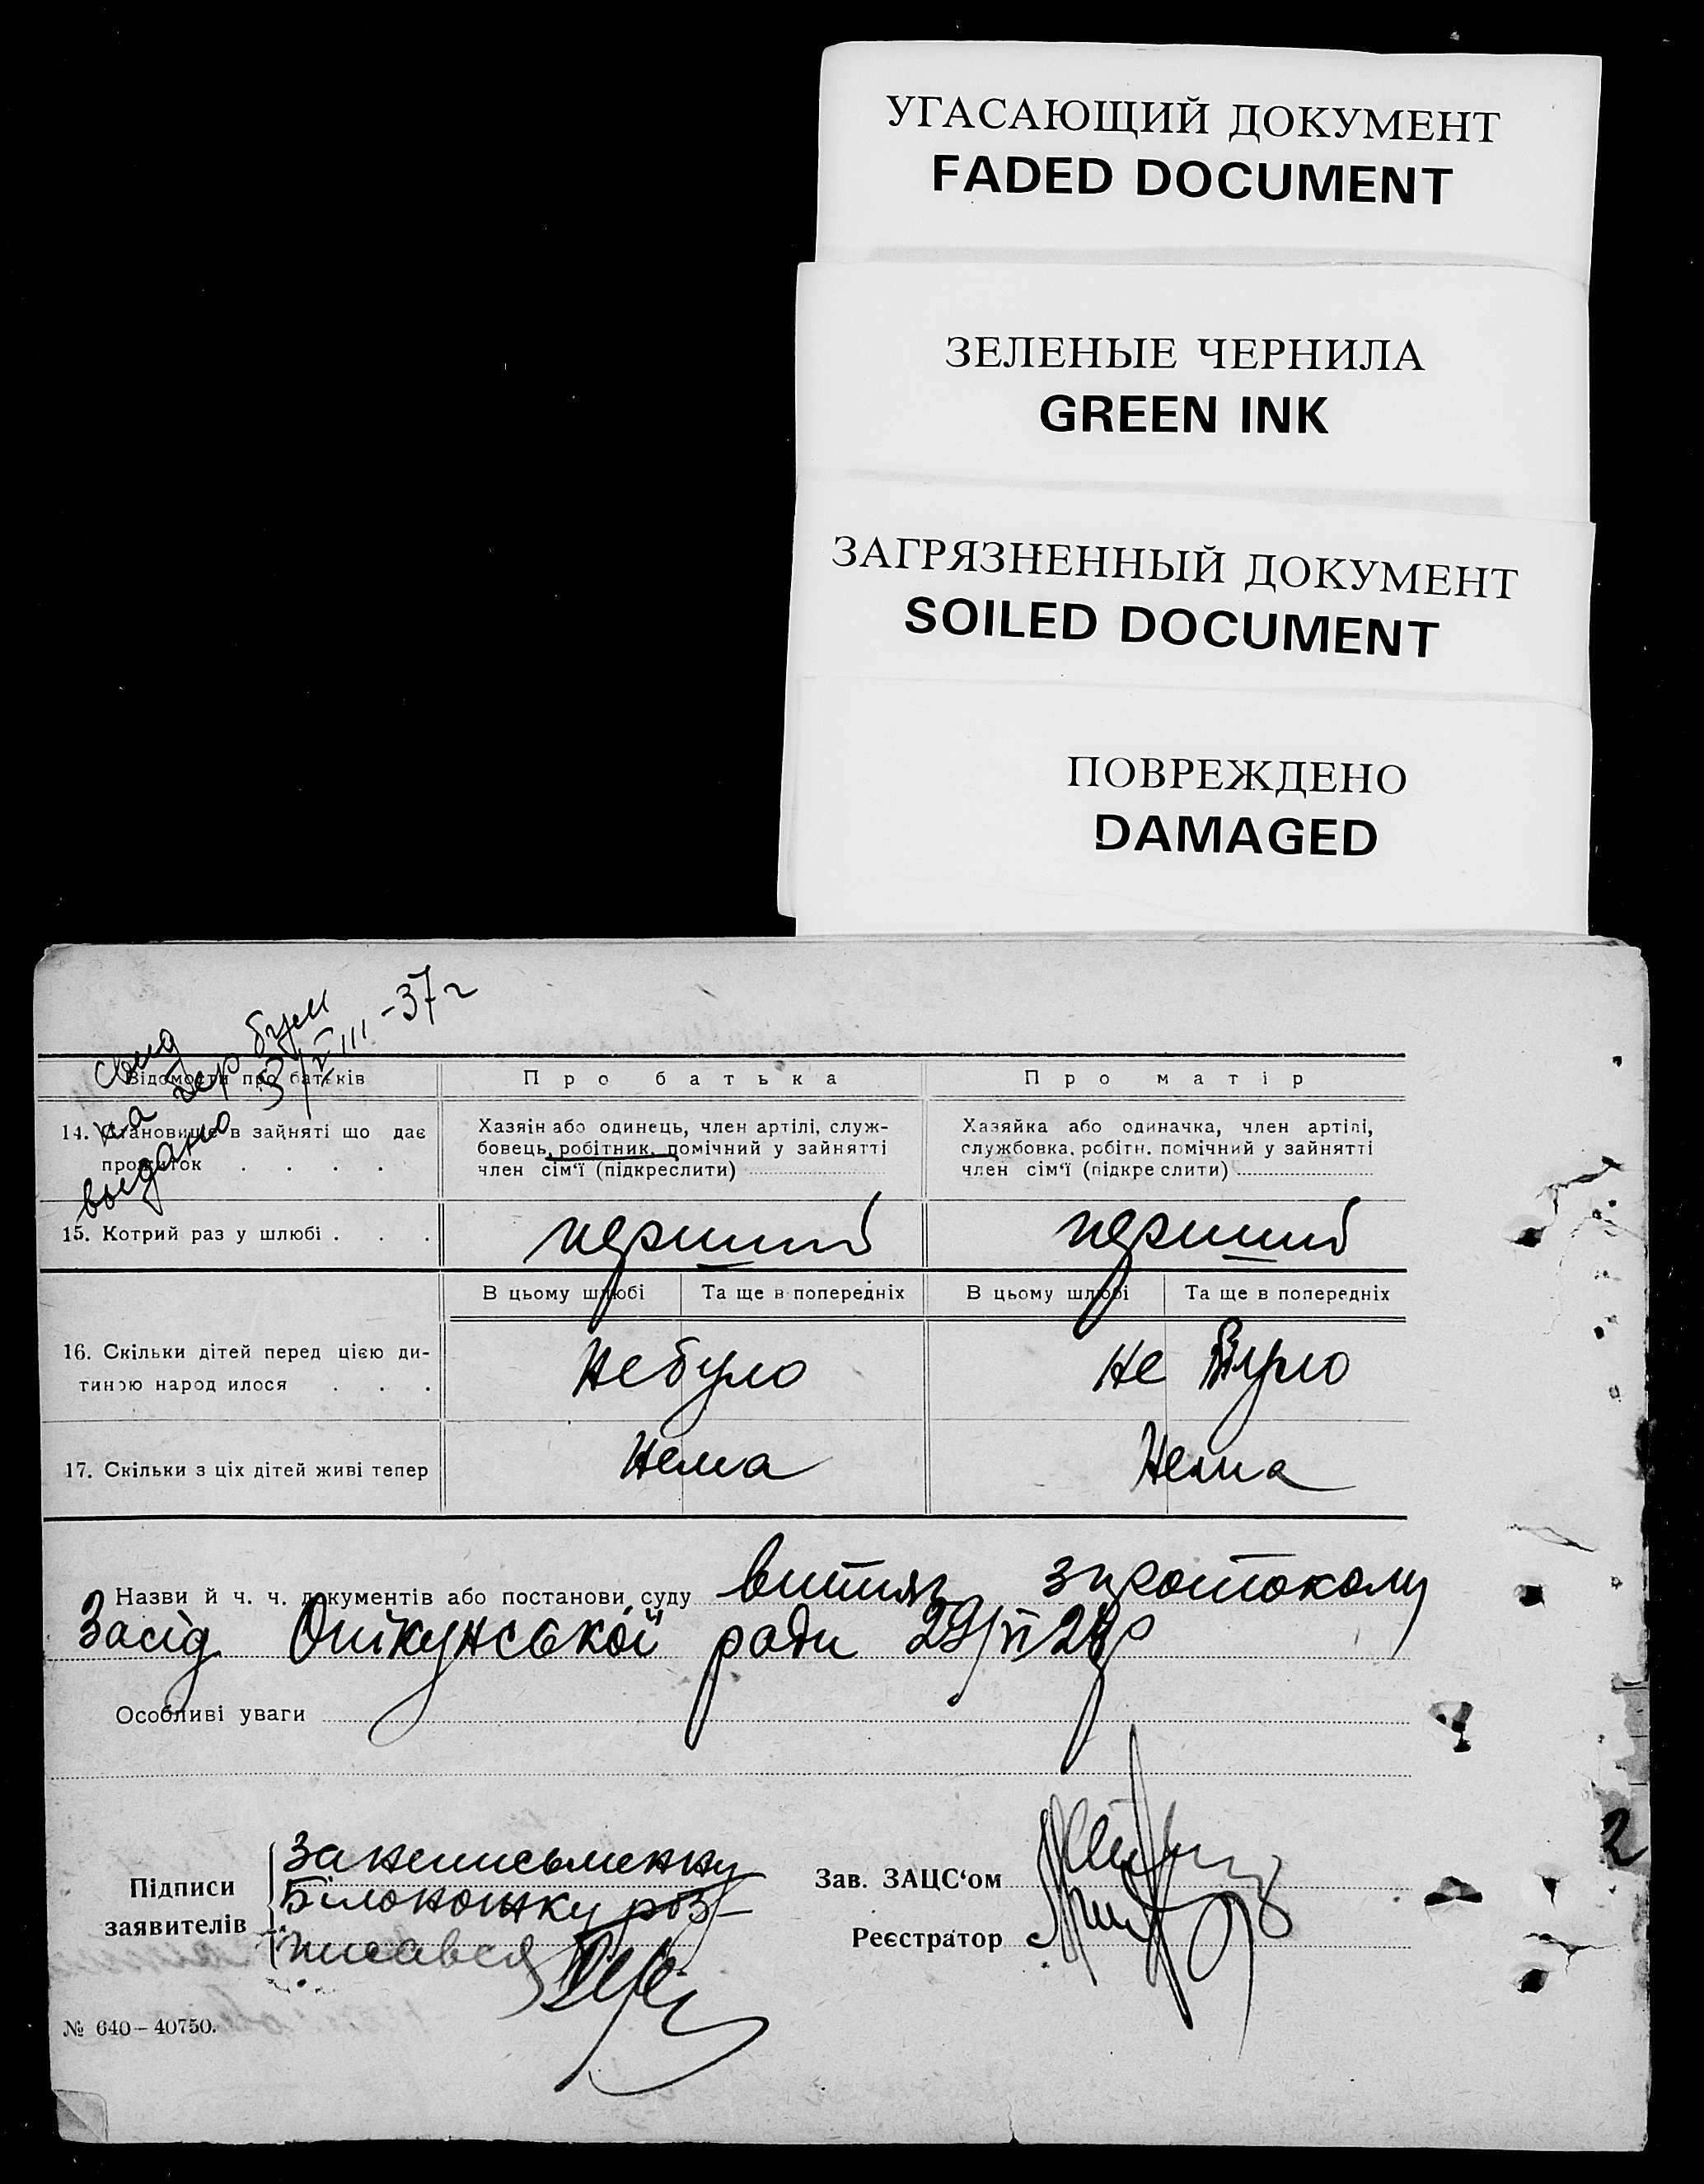 УГАСАЮЩИЙ ДОКУМЕНТ
FADED DOCUMENT
ЗЕЛЕНЫЕ ЧЕРНИЛА
GREEN INK
ЗАГРЯЗНЕННЫЙ ДОКУМЕНТ
SOILED DOCUMENT
ПОВРЕЖДЕНО
DAMAGED
на
выдано 3/VIII-37г
Відомости про батьків
Про батька
Про матір
14. Становище в зайняті що дає
прожиток . . . .
Хазяін або одинець, член артілі, служ-
бовець, робітник, помічний у зайнятті
член сім'ї (підкреслити)
Хазяйка або одиначка, член артілі,
службовка, робітн. помічний у зайнятті
член сім'ї (підкреслити)
15. Котрий раз у шлюбі . . .
перший
перший
В цьому шлюбі
Та ще в попередніх
В цьому шлюбі
Та ще в попередніх
16. Скільки дітей перед цією ди-
тиною народилося . . .
Небуло
не було
17. Скільки з ціх дітей живі тепер
Нема
Нема
Назви й ч. ч. документів або постанови суду витяг зпротоколу
Засід. Опікунської ради 29/VI 28р
Особливі уваги
Підписи
заявителів
За неписьменну
Білоножку роз-
писався
Зав. ЗАЦС'ом
Реєстратор
2
№ 640–40750.